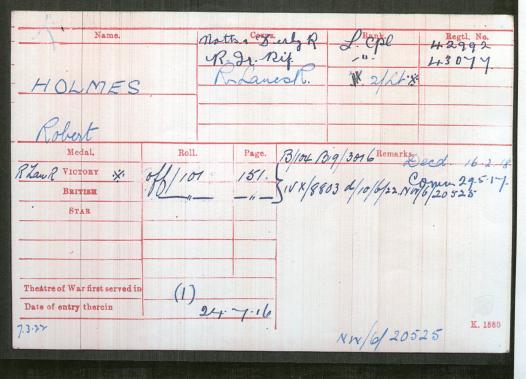 Name. Corps. Rank. Regtl. No.
Notts & Derby R L. Cpl 42992
R. Ir. Rif. -"- 43077
HOLMES R. Lancs R. * 2/Lt *
Robert
Medal. Roll. Page. Remarks.
B/104 B19/3016 Decd. 16-2-18
R Lan R VICTORY * off/101 151. Comm 29.5.17.
BRITISH -"- -"- IVX/8803 d/10/6/22. NW/6/20525
STAR
Theatre of War first served in (1)
Date of entry therein 24-7-16
7.3.22 K. 1380
NW/6/20525